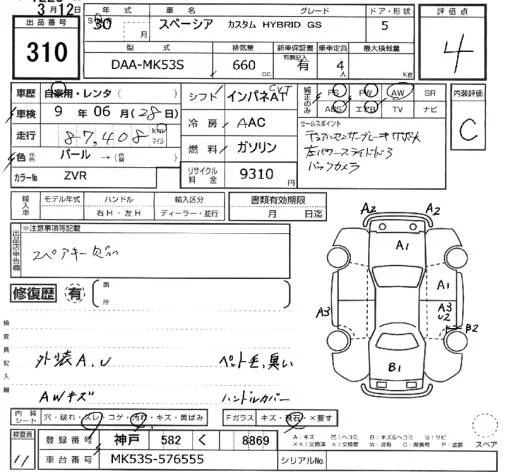 3月12日
出品番号
310
年式
30
月
車名
スペーシア
グレード
カスタム HYBRID GS
ドア・形状
5
評価点
4
型式
DAA-MK53S
排気量
660
cc
新車保証書
有
乗車定員
4
人
最大積載量
kg
車歴
自家用・レンタ ( )
シフト
インパネAT
CVT
純正のみ
PS PW AW SR
ABS エアB TV ナビ
内装評価
C
車検
9 年 06 月 (28 日)
冷房
AAC
セールスポイント
デュアルセンサーブレーキサポート
左パワースライドドア
バックカメラ
走行
87,408
km
マイル
燃料
ガソリン
色
パール → ( )
カラーNo
ZVR
リサイクル料金
9310
輸入車
モデル年式
ハンドル
右H・左H
輸入区分
ディーラー・並行
書類有効期限
月 日迄
出品店申告欄
※注意事項等記載
スペアキー
修復歴
有
箇所
検査員記入欄
外装A、U
ペット毛、臭い
AWキズ
ハンドルカバー
A2
A2
A1
A1
A3
A3
U2
B2
B1
内装シート
穴・破れ・スレ・コゲ・汚れ・キズ・黄ばみ
Fガラス
キズ・飛石・×要す
検査員
11
登録番号
神戸 582 く 8869
車台番号
MK53S-576555
シリアルNo.
A:キズ
凹:ヘコミ
B:キズ&ヘコミ
S:サビ
スペア